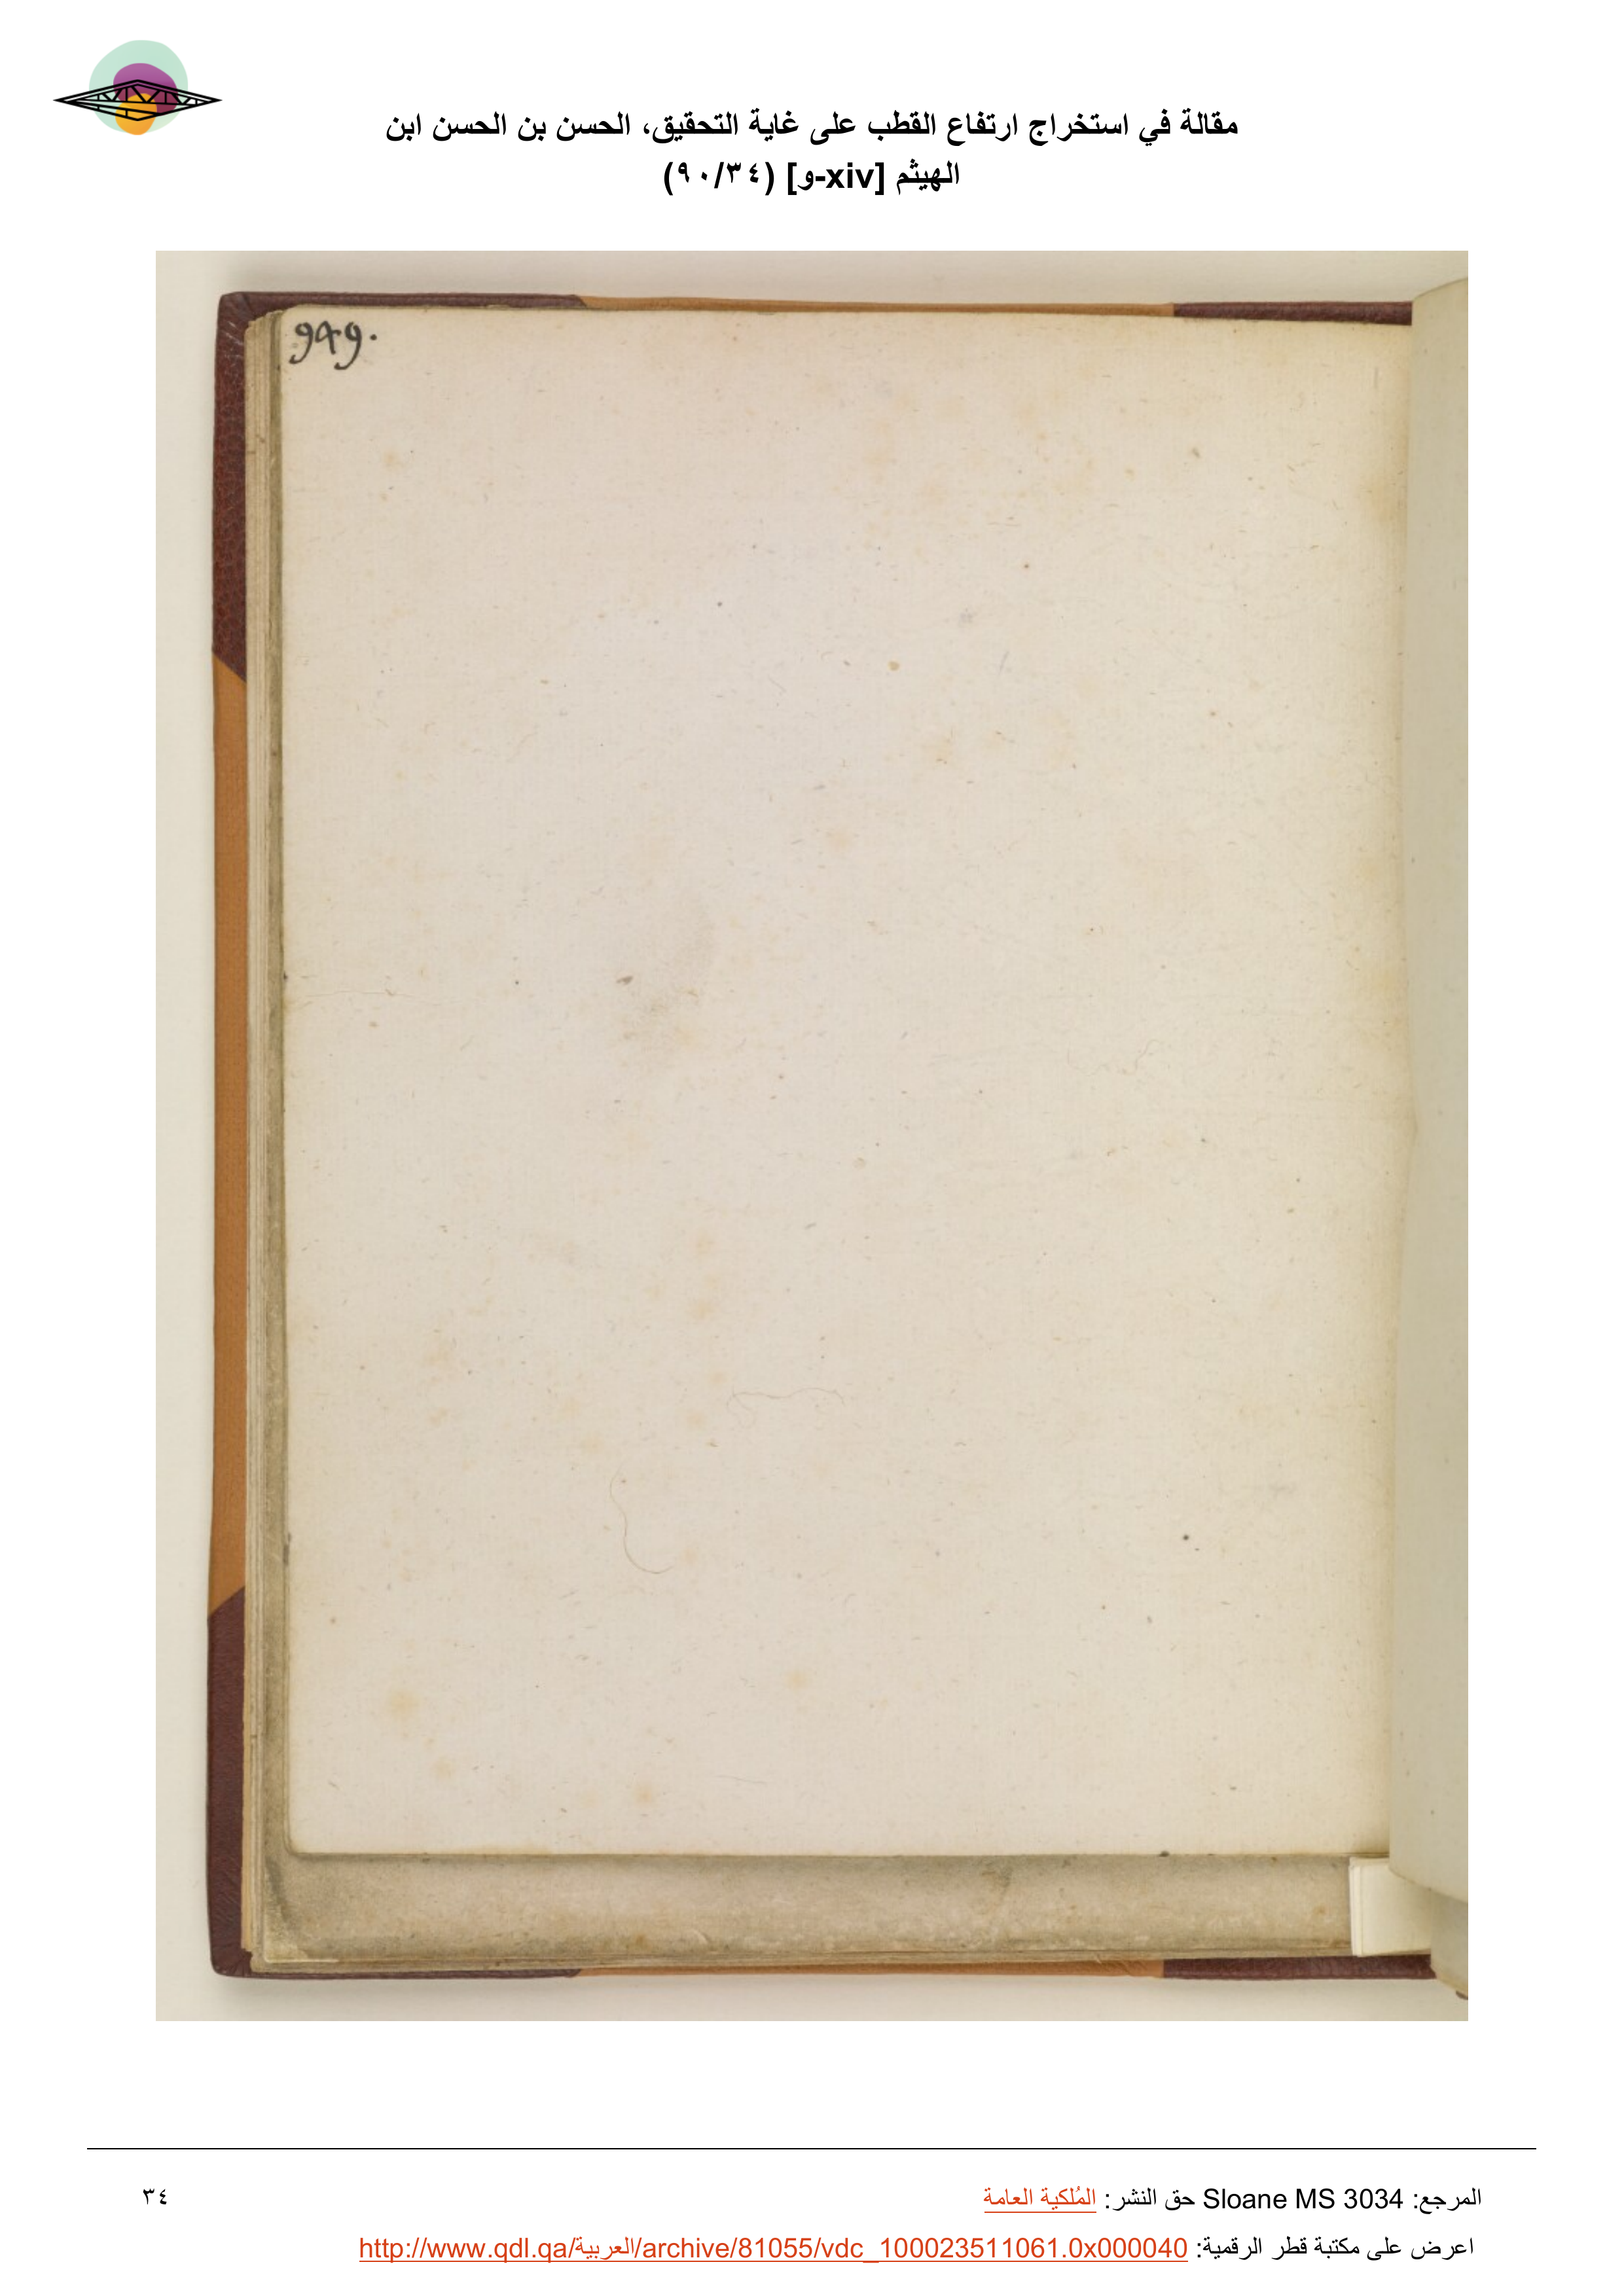 مقالة في استخراج ارتفاع القطب على غاية التحقيق، الحسن بن الحسن ابن
الهيثم [xiv-و] (٩٠/٣٤)
949.
المرجع: Sloane MS 3034 حق النشر: المُلكية العامة
٣٤
اعرض على مكتبة قطر الرقمية: http://www.qdl.qa/العربية/archive/81055/vdc_100023511061.0x000040